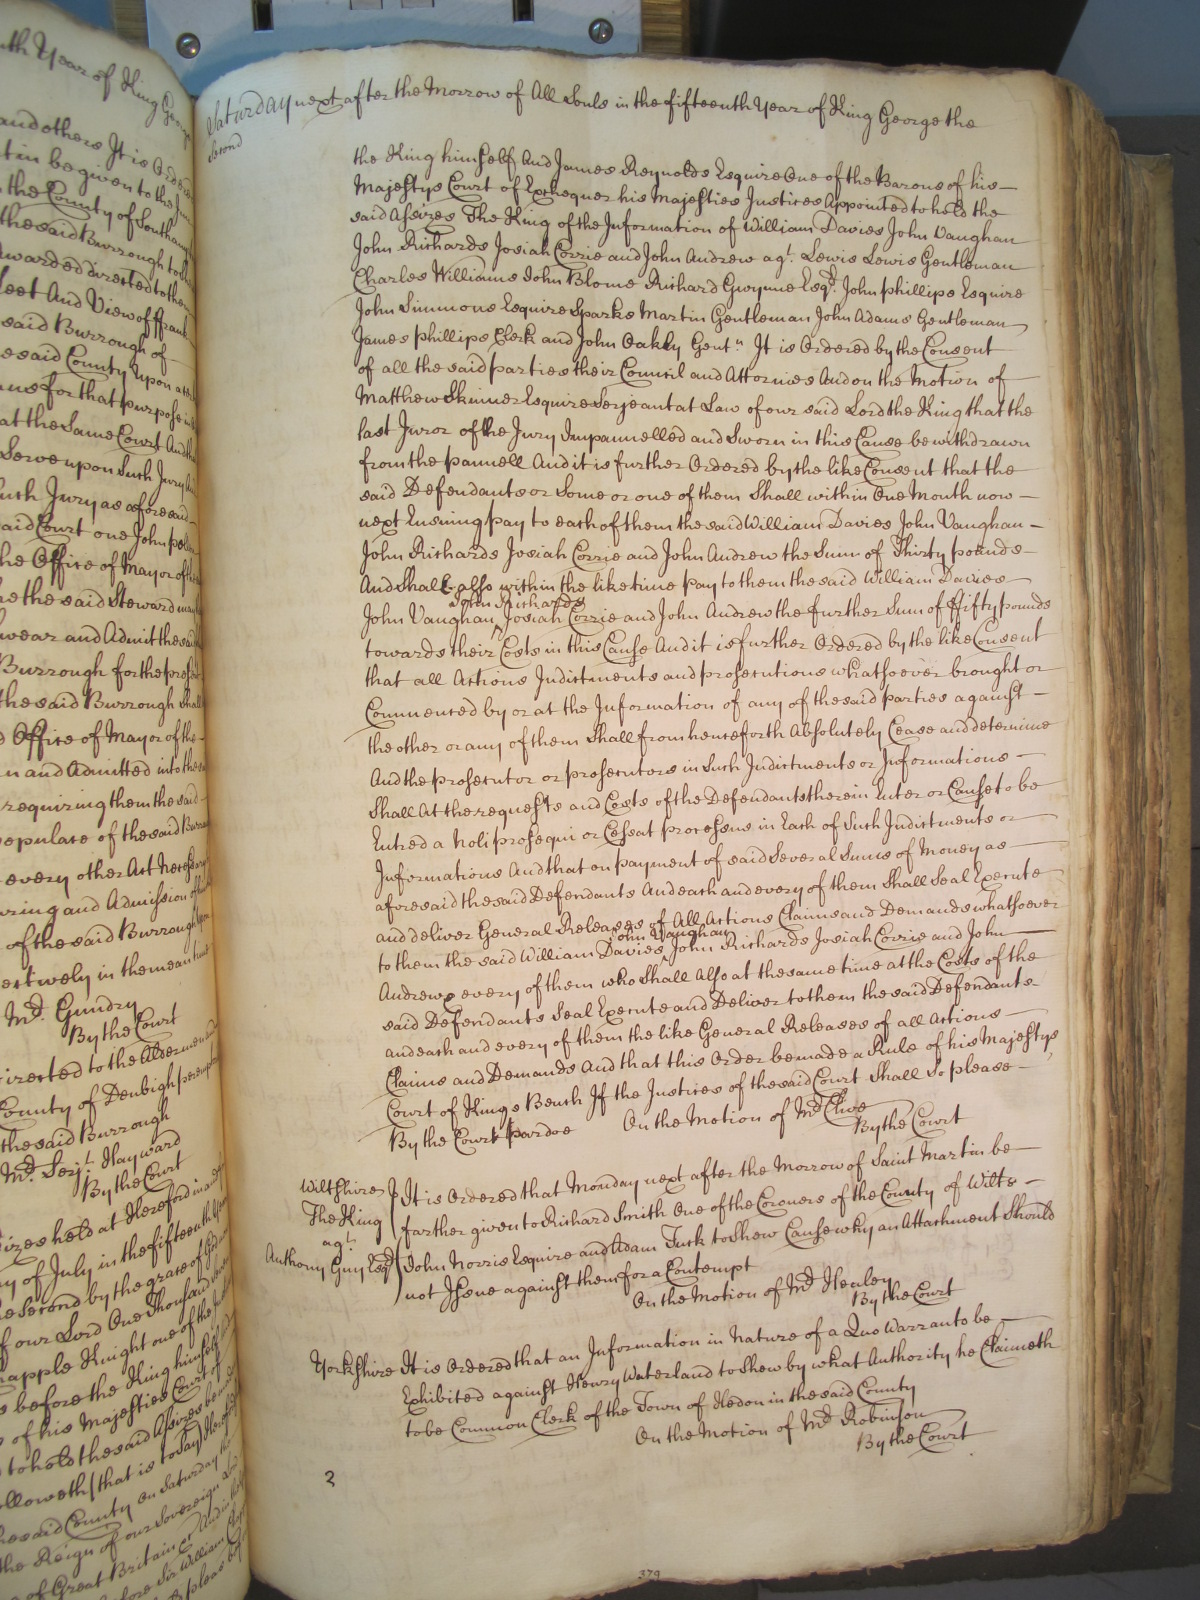 uth Year of King George
and others It is Ordered
tin be given to the
the County of Southam
the said Burrough to
Awarded directed to them
Leet And View of ffrank
said Burrough of
e said County upon
ans for that purpose
at the Same Court And
Serve upon Such Jury
Such Jury as aforesaid
said Court one John
the Office of Mayor of the
be the said Steward
swear and Admit the said
Burrough for the present
the said Burrough Shall
d Office of Mayor of the
n and Admitted into the
requiring them the said
populace of the said
every other Act necessary
aring and Admission of
of the said Burrough
ectively in the mean time
Mr. Gundry
By the Court
irected to the Aldermen
County of Denbigh
the said Burrough
Mr. Serjt. Hayward
By the Court
sizes held at Hereford in and
y of July in the fifteenth
e Second by the grace of God
of our Lord One Thousand
happle Knight one of the
s before the King himself
of his Majesties Court of
to hold the said Assizes
olloweth (that is to Say)
he said County on Saturday
the Reign of our Sovereign
of Great Britain
before Sir William
Saturday next after the Morrow of All Souls in the fifteenth Year of King George the
Second
the King himself And James Reynolds Esquire One of the Barons of his
Majestys Court of Exchequer his Majesties Justices Appointed to hold the
said Assizes The King of the Information of William Davies John Vaughan
John Richards Josiah Corrie and John Andrew agt. Lewis Lewis Gentleman
Charles Williams John Blome Richard Gwynne Esqr. John Phillips Esquire
John Simmons Esquire Sparks Martin Gentleman John Adams Gentleman
James Phillips Clerk and John Oakly Gentn. It is Ordered by the Consent
of all the said parties their Council and Attornies And on the Motion of
Matthew Skinner Esquire Serjeant at Law of our said Lord the King that the
last Juror of the Jury Impannelled and Sworn in this Cause be withdrawn
from the pannell And it is further Ordered by the like Consent that the
said Defendants or Some or one of them Shall within One Month now
next Ensuing pay to each of them the said William Davies John Vaughan
John Richards Josiah Corrie and John Andrew the Sum of Thirty pounds
And Shall also within the like time pay to them the said William Davies
John Richards
John Vaughan ^ Josiah Corrie and John Andrew the further Sum of ffifty pounds
towards their Costs in this Cause And it is further Ordered by the like Consent
that all Actions Indictments and prosecutions whatsoever brought or
Commenced by or at the Information of any of the said parties against
the other or any of them Shall from henceforth Absolutely Cease and determine
And the prosecutor or prosecutors in Such Indictments or Informations
Shall At the requests and Costs of the Defendants therein Enter or Cause to be
Entred a Noli prosequi or Cessat processus in Each of Such Indictments or
Informations And that on payment of said Several Sums of Money as
aforesaid the said Defendants And each and every of them Shall Seal Execute
and deliver General Releases of All Actions Claims and Demands whatsoever
John Vaughan
to them the said William Davies ^ John Richards Josiah Corrie and John
Andrew & every of them who Shall Also at the same time at the Costs of the
said Defendants Seal Execute and Deliver to them the said Defendants
and each and every of them the like General Releases of all Actions
Claims and Demands And that this Order be made a Rule of his Majestys
Court of Kings Bench If the Justices of the said Court Shall So please
By the Court Pardoe On the Motion of Mr. Clive
By the Court
Wiltshire It is Ordered that Monday next after the Morrow of Saint Martin be
The King farther given to Richard Smith One of the Coroners of the County of Wilts
agt.
Anthony Guy Esqr. John Norris Esquire and Adam Tuck to Shew Cause why an Attachment Should
not Issue against them for a Contempt
On the Motion of Mr. Henley
By the Court
Yorkshire It is Ordered that an Information in Nature of a Quo Warranto be
Exhibited against Henry Waterland to Shew by what Authority he Claimeth
to be Common Clerk of the Town of Hedon in the said County
On the Motion of Mr. Robinson
By the Court
2
379